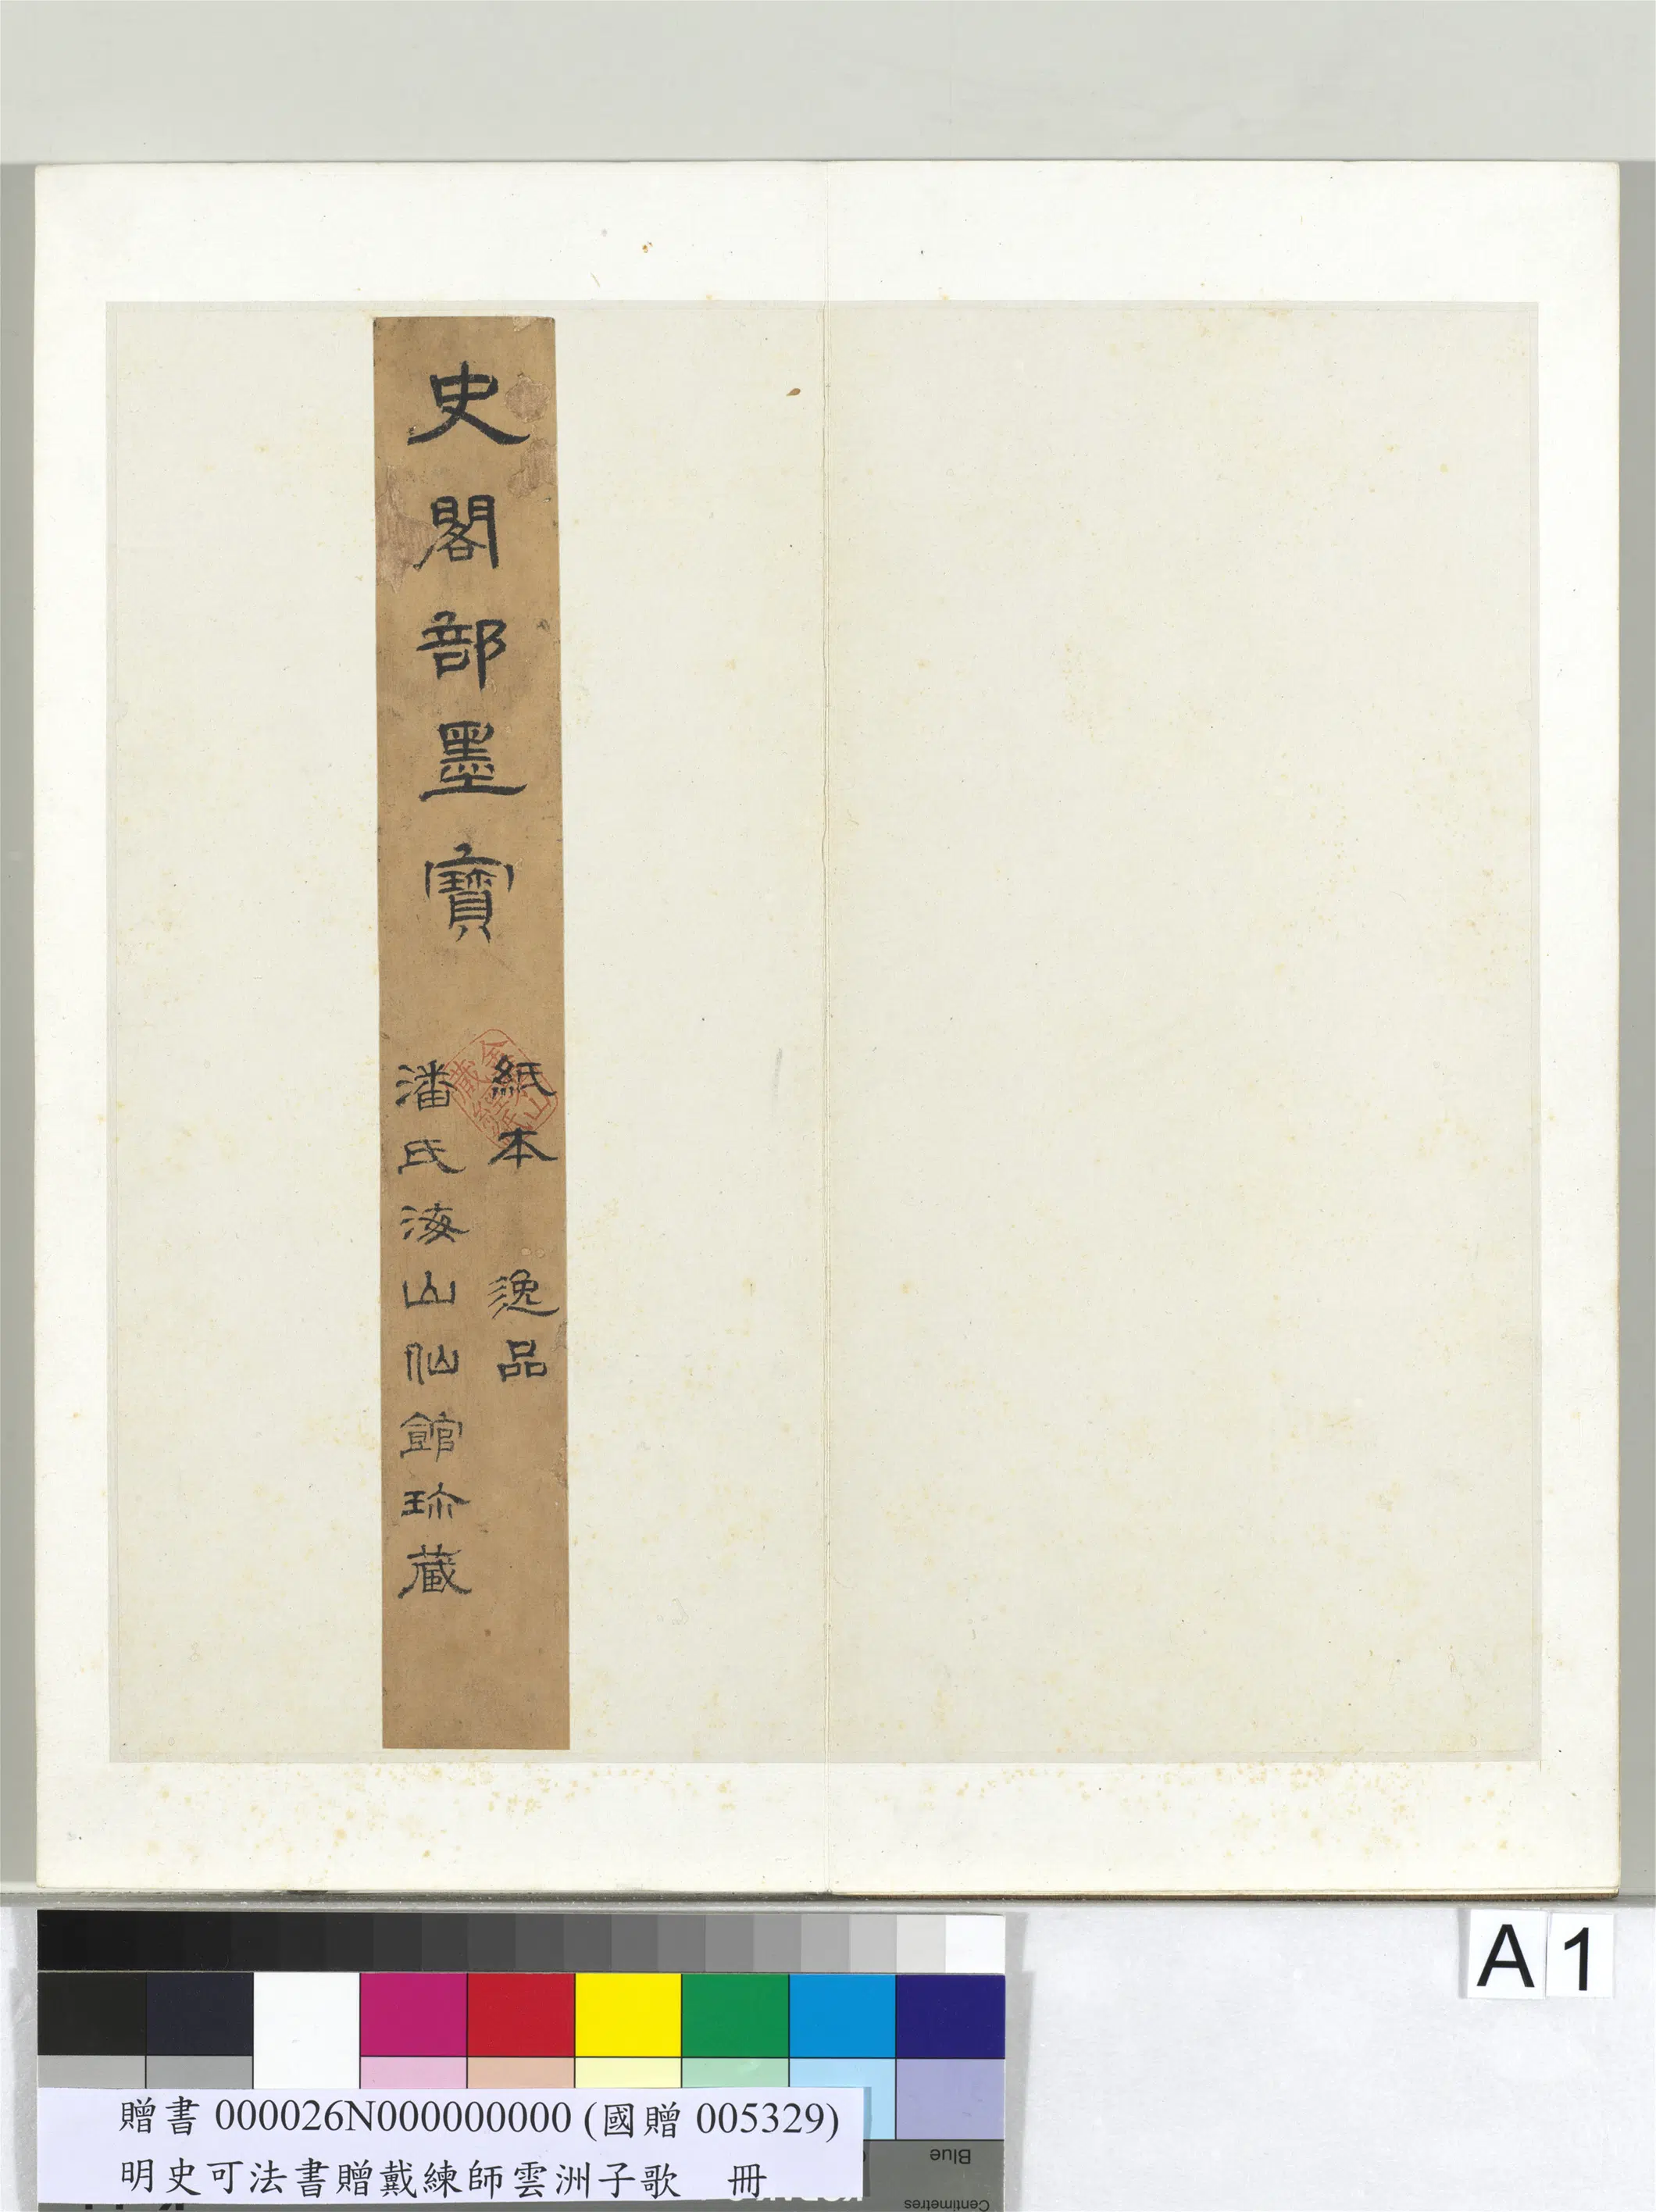 史閣部墨寶
紙本 逸品
潘氏海山仙館珎藏
A 1
贈書 000026N000000000 (國贈 005329)
明史可法書贈戴練師雲洲子歌 冊
Blue
Centimetres